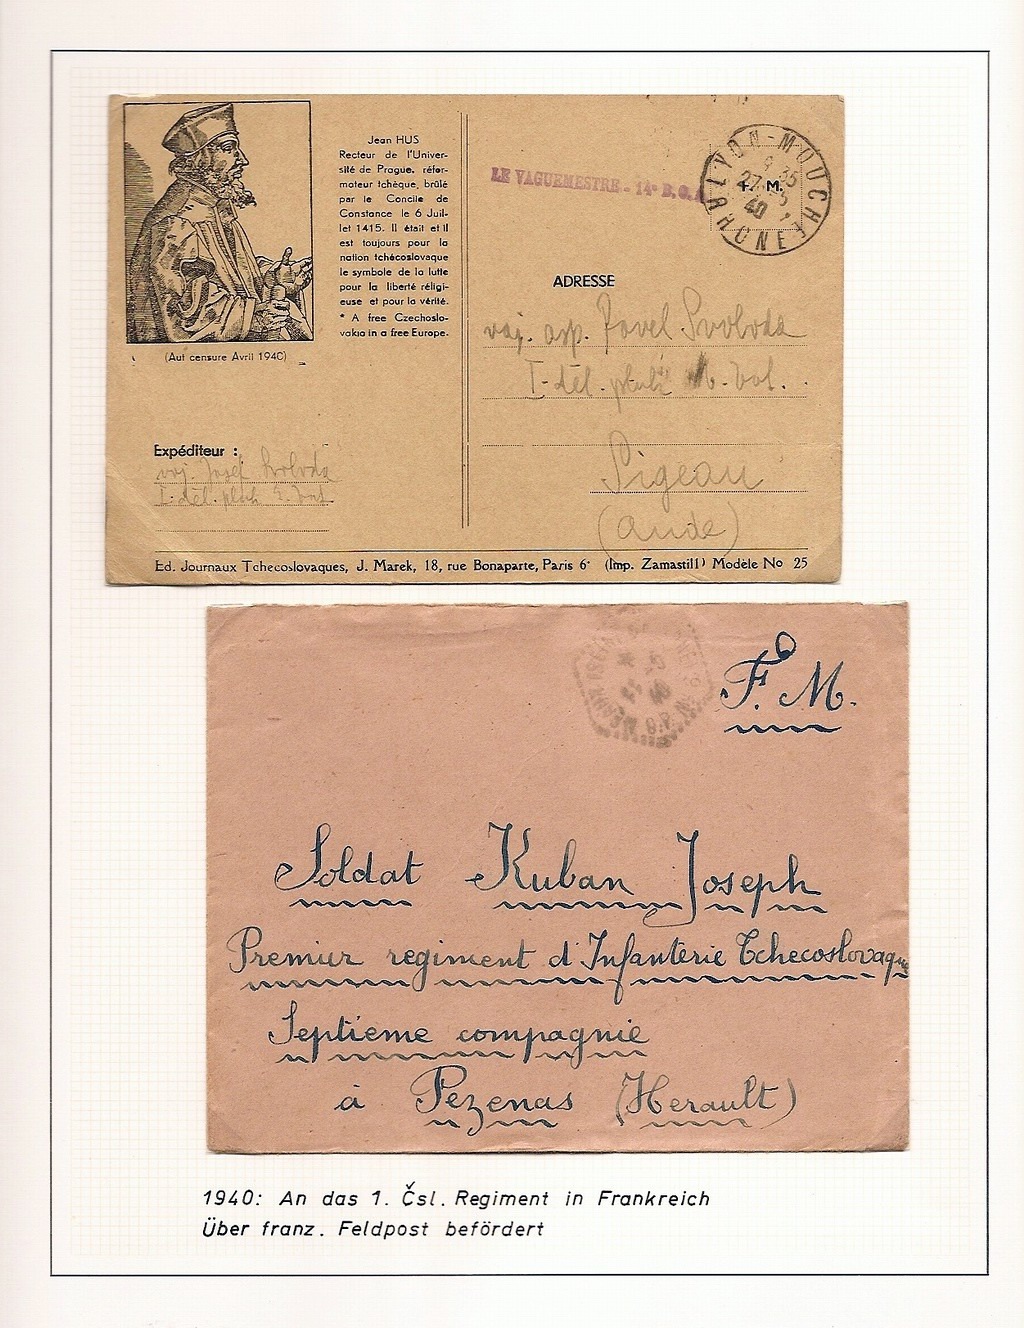 Jean HUS
Recteur de l'Univer-
sité de Prague, réfor-
mateur tchèque, brûlé
par le Concile de
Constance le 6 Juil-
let 1415. Il était et il
est toujours pour la
nation tchécoslovaque
le symbole de la lutte
pour la liberté religi-
euse et pour la vérité.
* A free Czechoslo-
vakia in a free Europe.
(Aut censure Avril 1940)
Expéditeur :
voj. Josef Svoboda
I. děl. pluk
LE VAGUEMESTRE - 14e B.O.A
LYON-MOUCHE
RHONE
9 35
27 - 5
40
F. M.
ADRESSE
voj. asp. Pavel Svoboda
I. děl. pluk
Sigean
(Aude)
Ed. Journaux Tchecoslovaques, J. Marek, 18, rue Bonaparte, Paris 6e (Imp. Zamastil1) Modèle No 25
F. M.
Soldat Kuban Joseph
Premiur regiment d'Infanterie Tchecoslovaque
Septieme compagnie
à Pezenas (Herault)
1940: An das 1. Čsl. Regiment in Frankreich
Über franz. Feldpost befördert